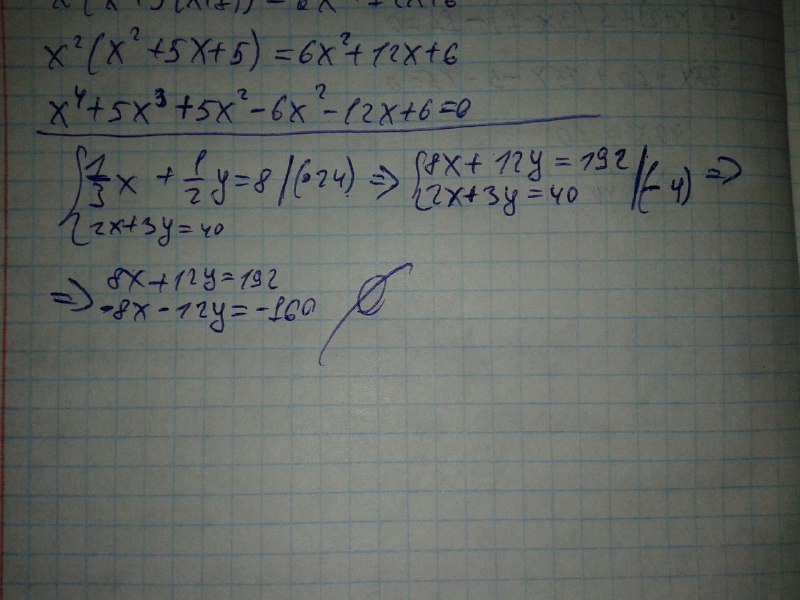 x²(x²+5x+5)=6x²+12x+6
x⁴+5x³+5x²-6x²-12x+6=0
{1/3x + 1/2y=8 |(·24) => {8x+12y=192
2x+3y=40 2x+3y=40 |(-4) =>
=> 8x+12y=192
-8x-12y=-160 ∅